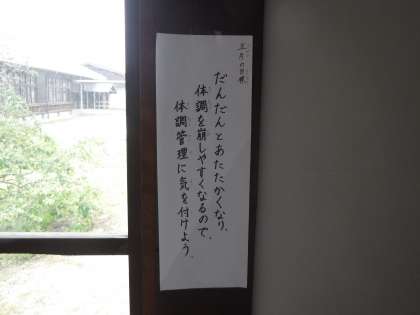 五月の目標
だんだんとあたたかくなり、
体調を崩しやすくなるので、
体調管理に気を付けよう。